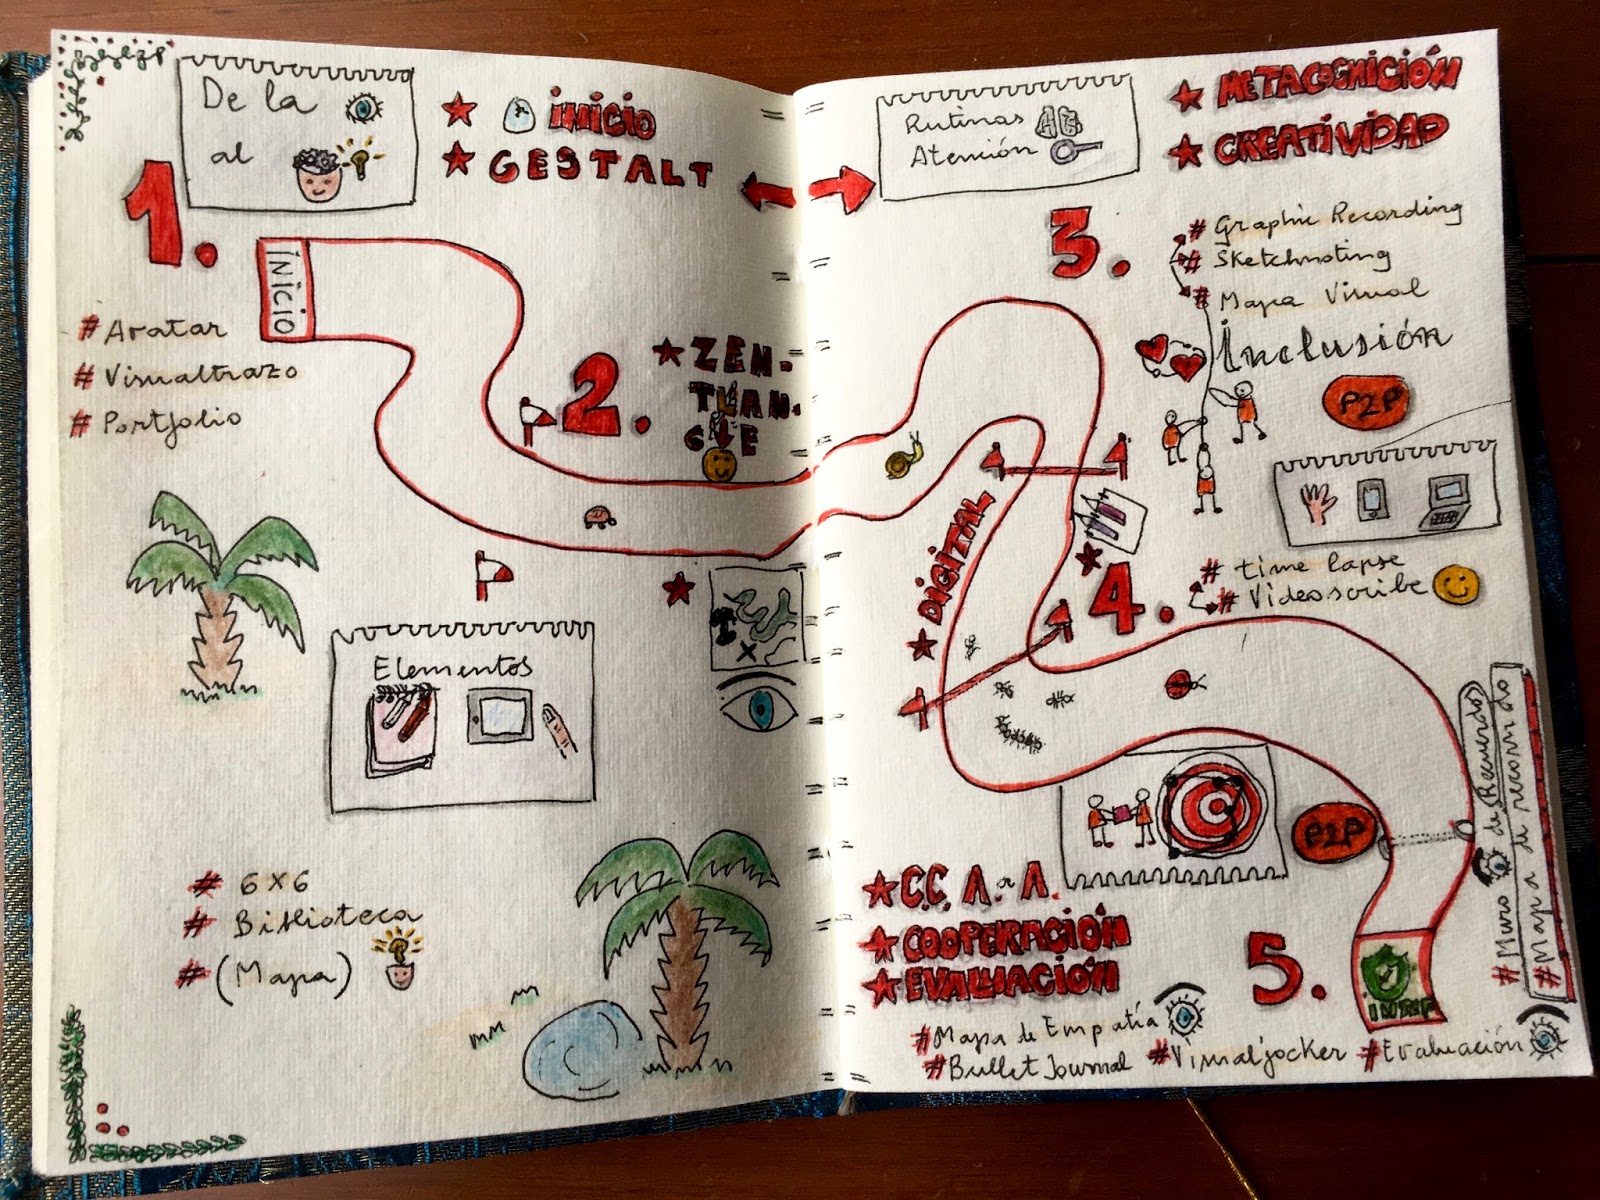 De la
al
★ INICIO
★ GESTALT
1.
INICIO
# Avatar
# Visualtrazo
# Portfolio
2.
★ ZEN-
TVAN-
G E
Elementos
# 6x6
# Biblioteca
# (Mapa)
Rutinas
Atención
★ METACOGNICIÓN
★ CREATIVIDAD
3.
# Graphic Recording
# Sketchnoting
# Mapa Visual
Inclusión
P2P
★ DIGITAL
4.
# time lapse
# Videoscribe
P2P
★ C.C. A a A.
★ COOPERACIÓN
★ EVALUACIÓN
5.
INTEF
# Mapa de Empatía
# Bullet Journal
# Visual jocker
# Evaluación
# Muro de Recuerdos
# Mapa de recorrido